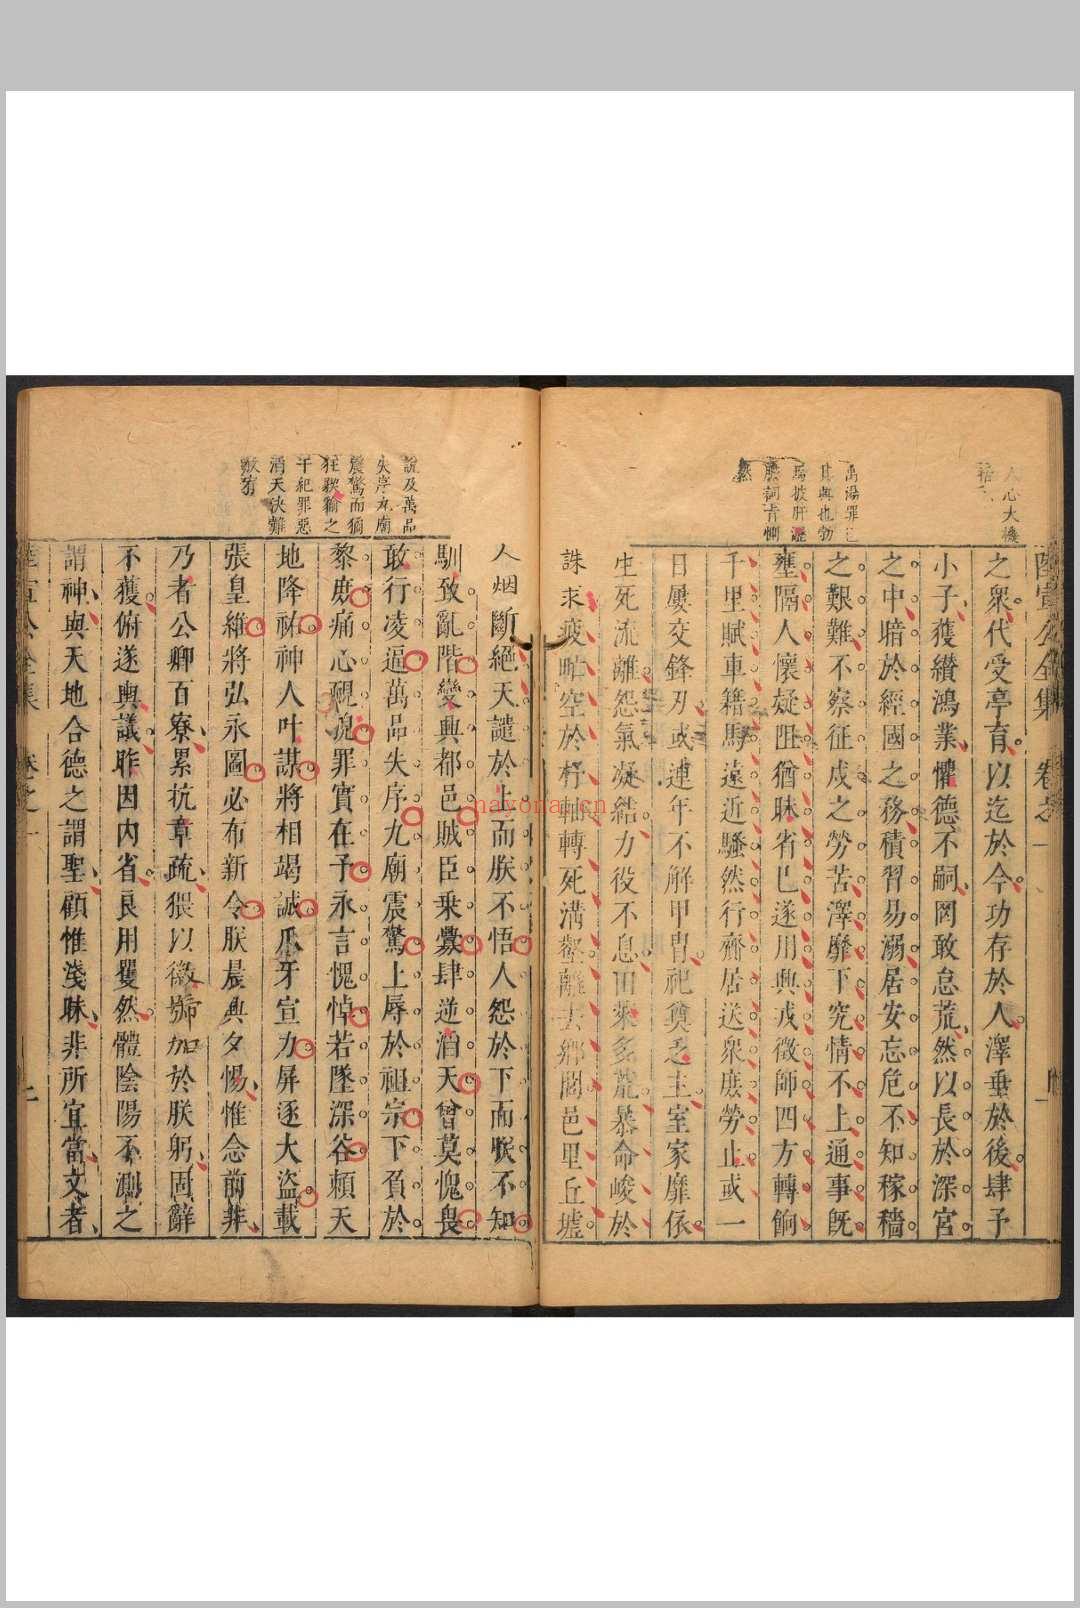 陸宣公全集 卷之一
之衆代受亭育以迄於今功存於人澤垂於後肆予
小子獲纘鴻業懼德不嗣罔敢怠荒然以長於深宮
之中暗於經國之務積習易溺居安忘危不知稼穡
之艱難不察征戍之勞苦澤靡下究情不上通事既
壅隔人懷疑阻猶昧省已遂用興戎徵師四方轉餉
千里賦車籍馬遠近騷然行齎居送衆庶勞止或一
日屢交鋒刃或連年不解甲冑祀奠乏主室家靡依
生死流離怨氣凝結力役不息田萊多荒暴命峻於
誅求疲甿空於杼軸轉死溝壑離去鄉閭邑里丘墟
人心大機
禹湯罪已
其興也勃
焉披肝瀝
膽詞肯惻
然
人烟斷絕天譴於上而朕不悟人怨於下而朕不知
馴致亂階變興都邑賊臣乘釁肆逆滔天曾莫愧畏
敢行凌逼萬品失序九廟震驚上辱於祖宗下負於
黎庶痛心靦貌罪實在予永言愧悼若墜深谷賴天
地降祐神人叶謀將相竭誠爪牙宣力屏逐大盜載
張皇維將弘永圖必布新令朕晨興夕惕惟念前非
乃者公卿百寮累抗章疏猥以徽號加於朕躬固辭
不獲俯遂輿議昨因內省良用矍然體陰陽不測之
謂神與天地合德之謂聖顧惟淺昧非所宜當文者
說及萬品
失序九廟
震驚而猶
狂猰貐之
干紀罪惡
滔天決難
赦宥
陸宣公全集 卷之一
nayona.cn